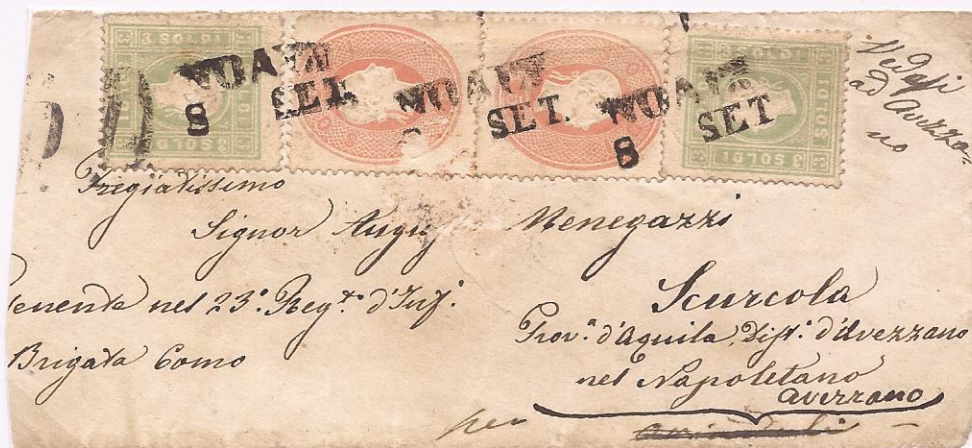 3 SOLDI 3
NOALE
8 SET.
NOALE
SET.
NOALE
8 SET
3 SOLDI 3
Vedasi
ad Avezza=
no
Pregiatissimo
Signor Menegazzi
enente nel 23º. Regtº d'Inf:
Brigata Como
Scurcola
Prov:ª d'Aquila, Dist: d'Avezzano
nel Napoletano
Avezzano
per